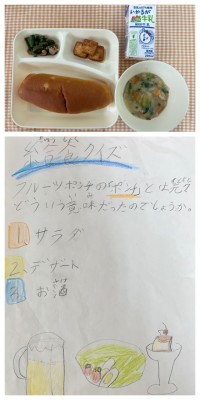 いかるが牛乳
給食クイズ
フルーツポンチの「ポンチ」とは元々
どういう意味だったのでしょうか。
1. サラダ
2. デザート
3. お酒